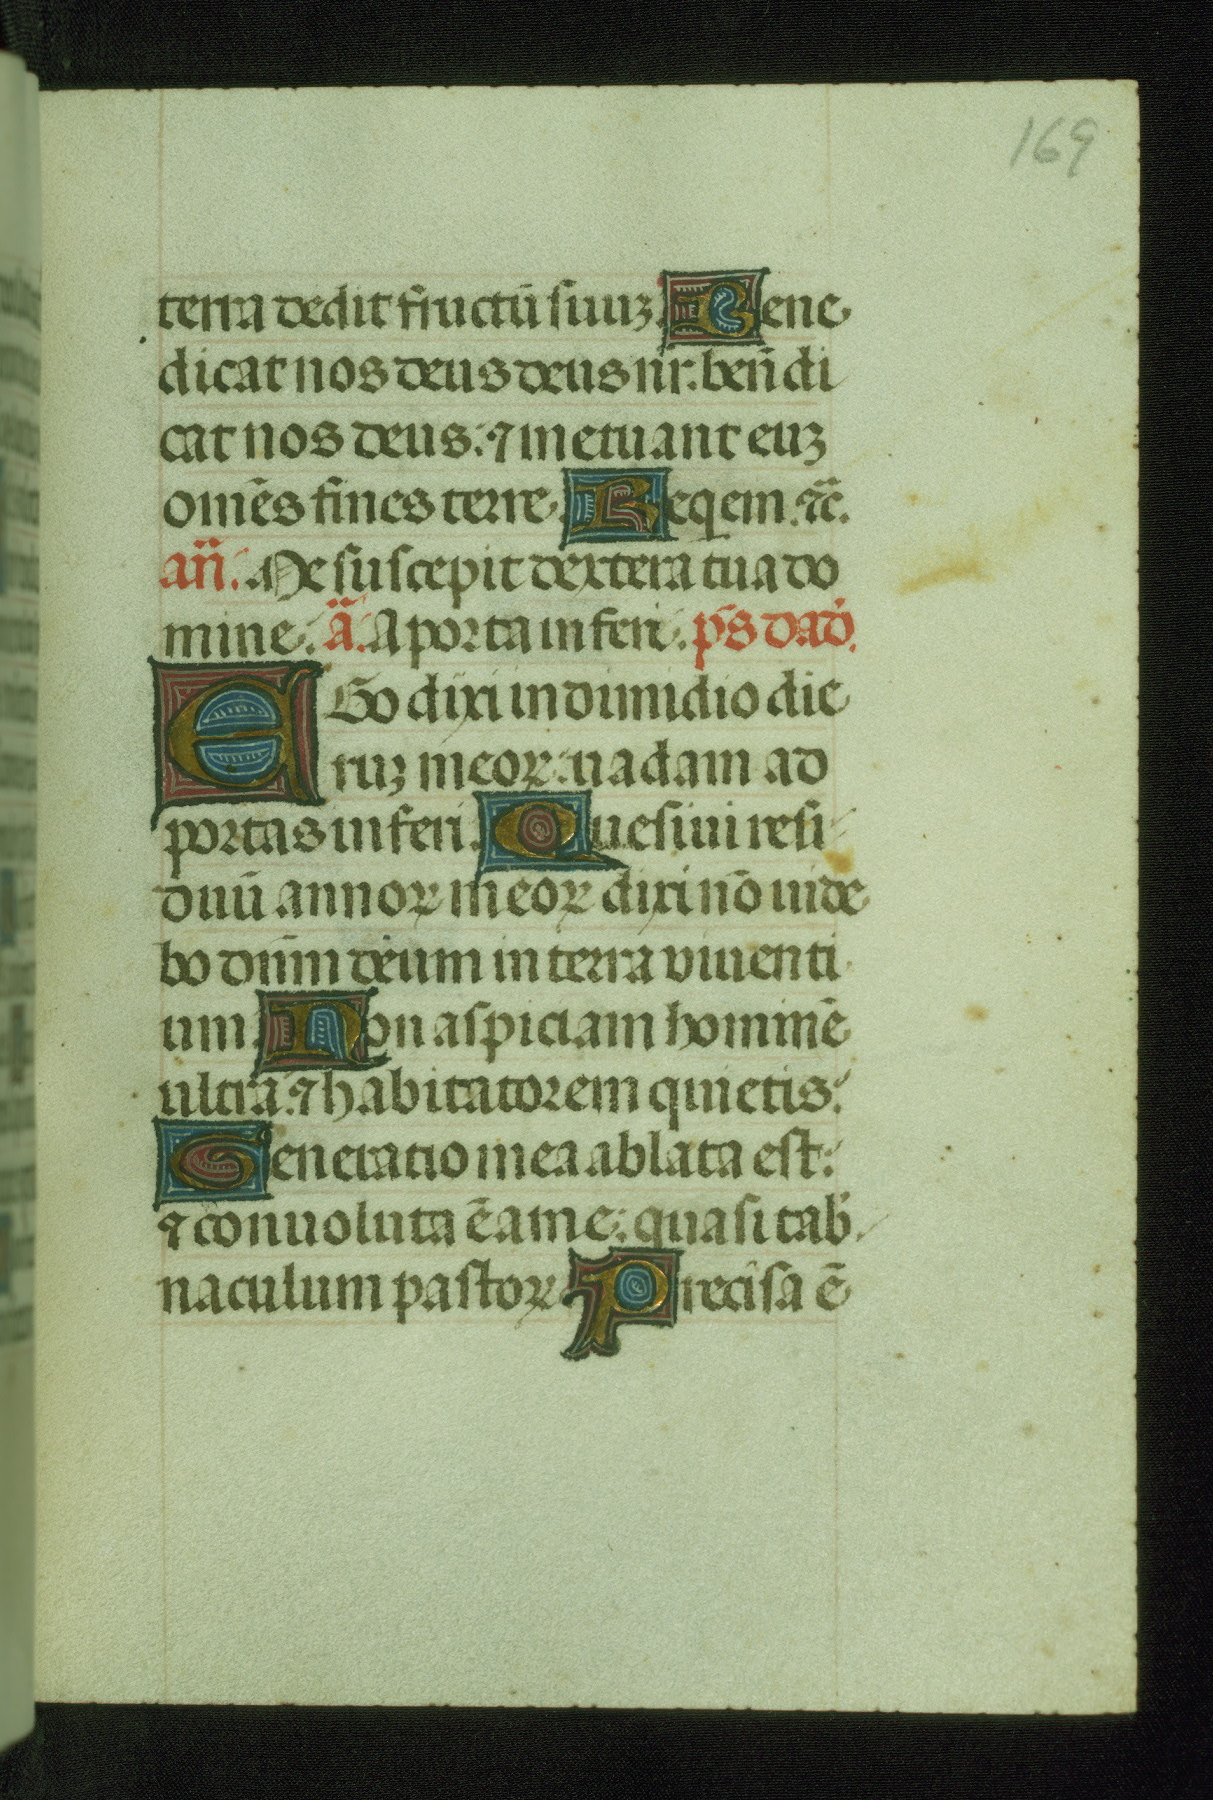 169
terra dedit fructū suuꝫ. Bene
dicat nos deus deus nr̄. ben̄di
cat nos deus: ⁊ metuant euꝫ
om̄es fines terre. Reqem. ⁊c̄.
an̄. Me suscepit dextera tua do
mine. ā. A porta inferi. ps̄ dad̄.
EGo dixi in dimidio die
ruꝫ meoꝝ: uadam ad
portas inferi. Quesiui resi
duū annoꝝ meoꝝ dixi nō uide
bo dn̄m deum in terra viuenti
um. Non aspiciam hominē
ultra: ⁊ habitatorem quietis:
Generatio mea ablata est:
⁊ conuoluta ē a me: quasi tab̄
naculum pastoꝝ. Precisa ē